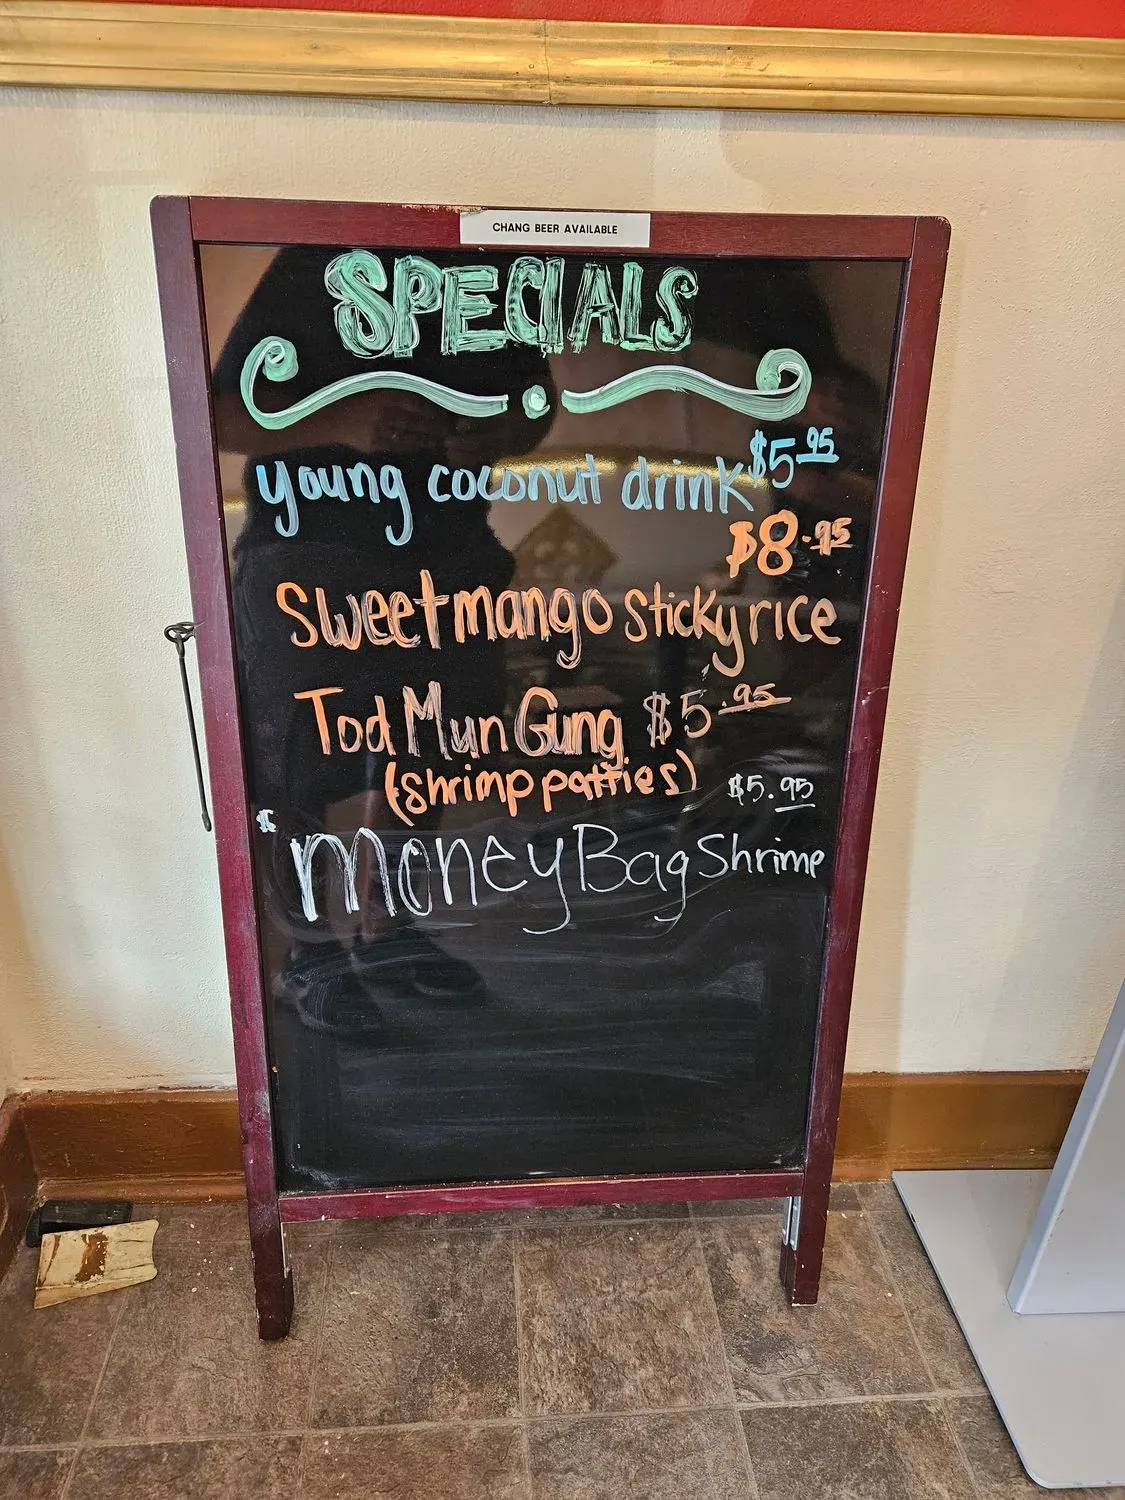 CHANG BEER AVAILABLE
SPECIALS
young coconut drink $5.95
$8.95
Sweet mango sticky rice
Tod Mun Gung $5.95
(shrimp patties)
$5.95
$
Money Bag Shrimp